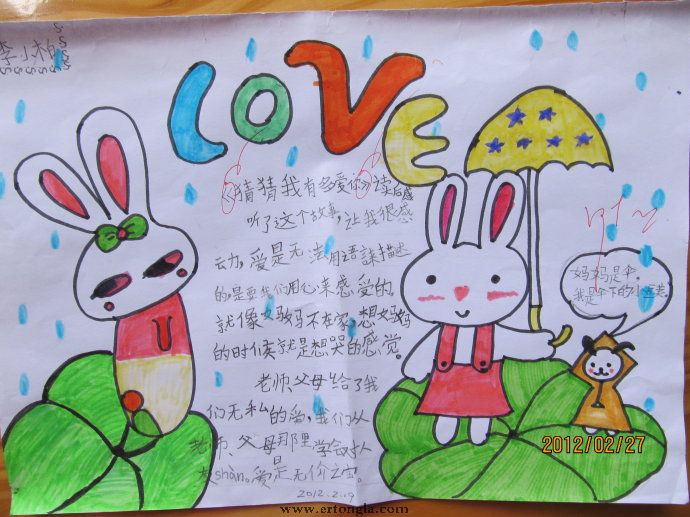 李小柏
LOVE
《猜猜我有多爱你》读后感
听了这个故事,让我很感
动,爱是无法用语言描述
的是要我们用心来感受的。
就像文文妈妈不在家,想妈妈
的时候就是想哭的感觉。
老师、父母给了我
们无私的爱,我们从
老师、父母那里学会对人
友shàn。爱是无价之宝。
2012.2.19
妈妈是伞,
我是伞下的小
2012/02/27
www.ertongla.com